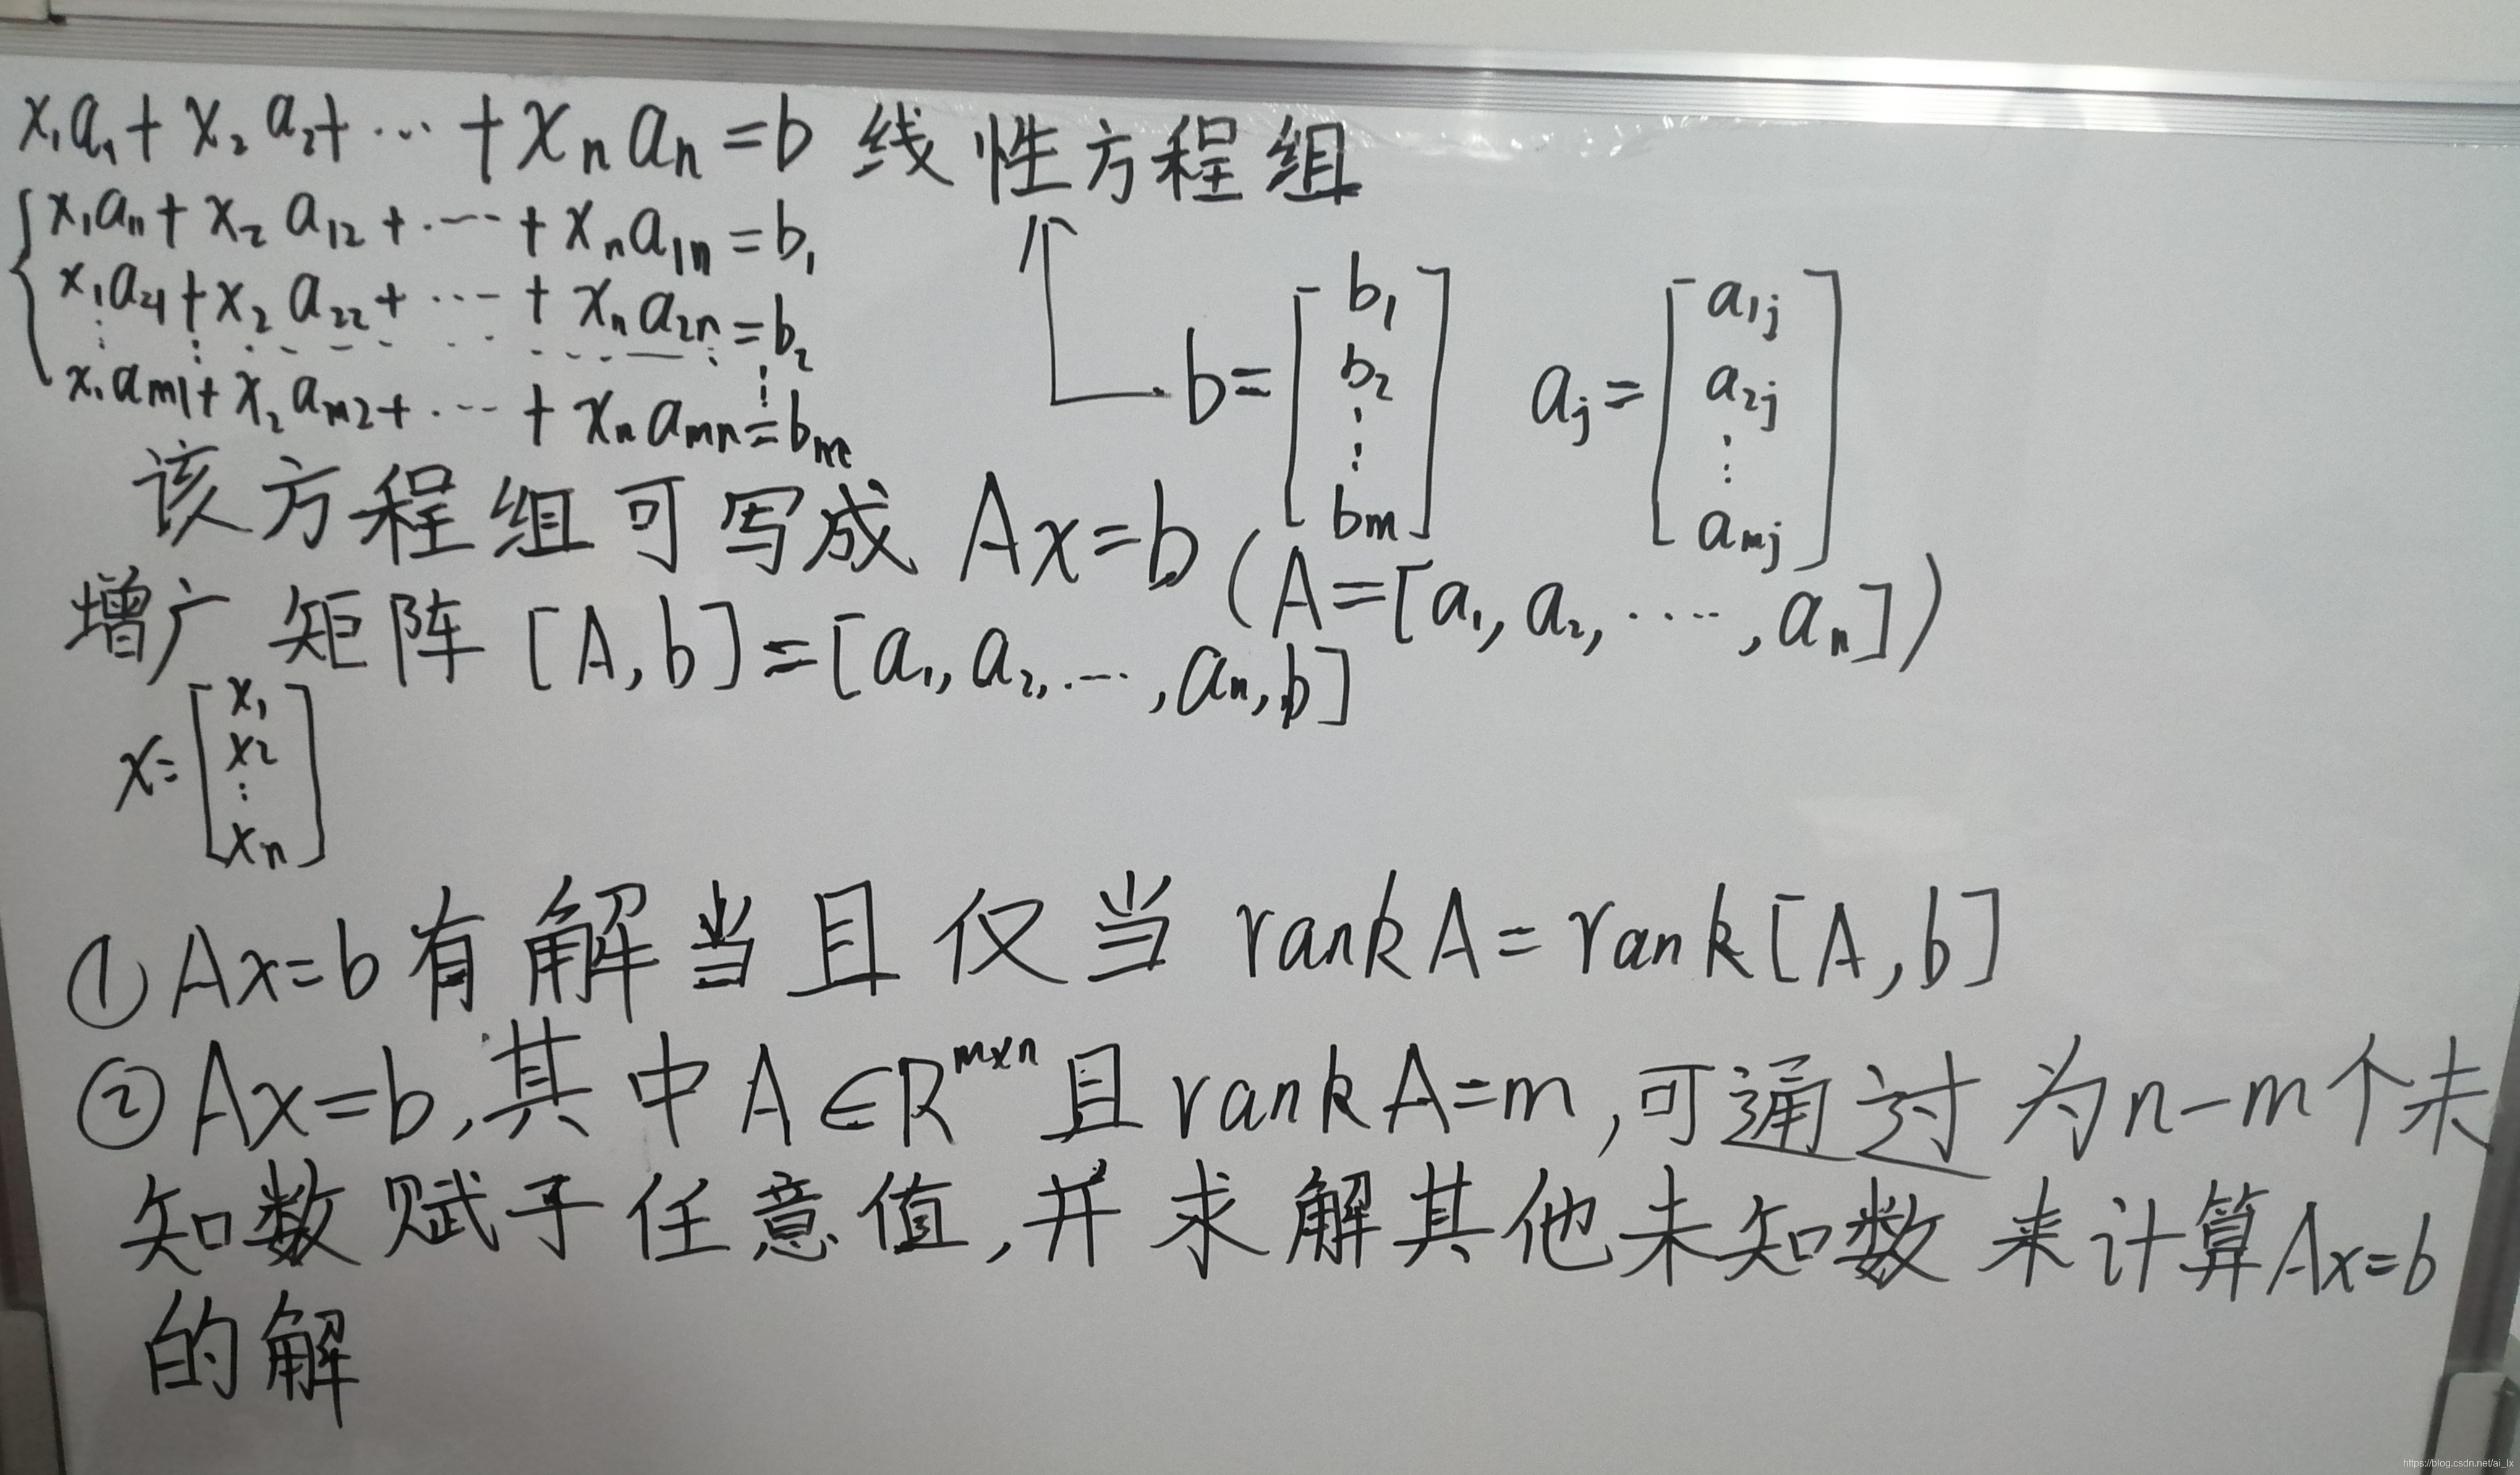 x₁a₁+x₂a₂+⋯+xₙaₙ=b 线性方程组
x₁a₁₁+x₂a₁₂+⋯+xₙa₁ₙ=b₁
x₁a₂₁+x₂a₂₂+⋯+xₙa₂ₙ=b₂
⋮
x₁aₘ₁+x₂aₘ₂+⋯+xₙaₘₙ=bₘ
b=[b₁ b₂ ⋮ bₘ] aⱼ=[a₁ⱼ a₂ⱼ ⋮ aₘⱼ]
该方程组可写成 Ax=b (A=[a₁,a₂,⋯,aₙ])
增广矩阵 [A,b]=[a₁,a₂,⋯,aₙ,b]
x=[x₁ x₂ ⋮ xₙ]
① Ax=b有解当且仅当 rankA=rank[A,b]
② Ax=b,其中A∈R^{m×n}且rankA=m,可通过为n-m个未
知数赋予任意值,并求解其他未知数来计算Ax=b
的解
https://blog.csdn.net/ai_lx